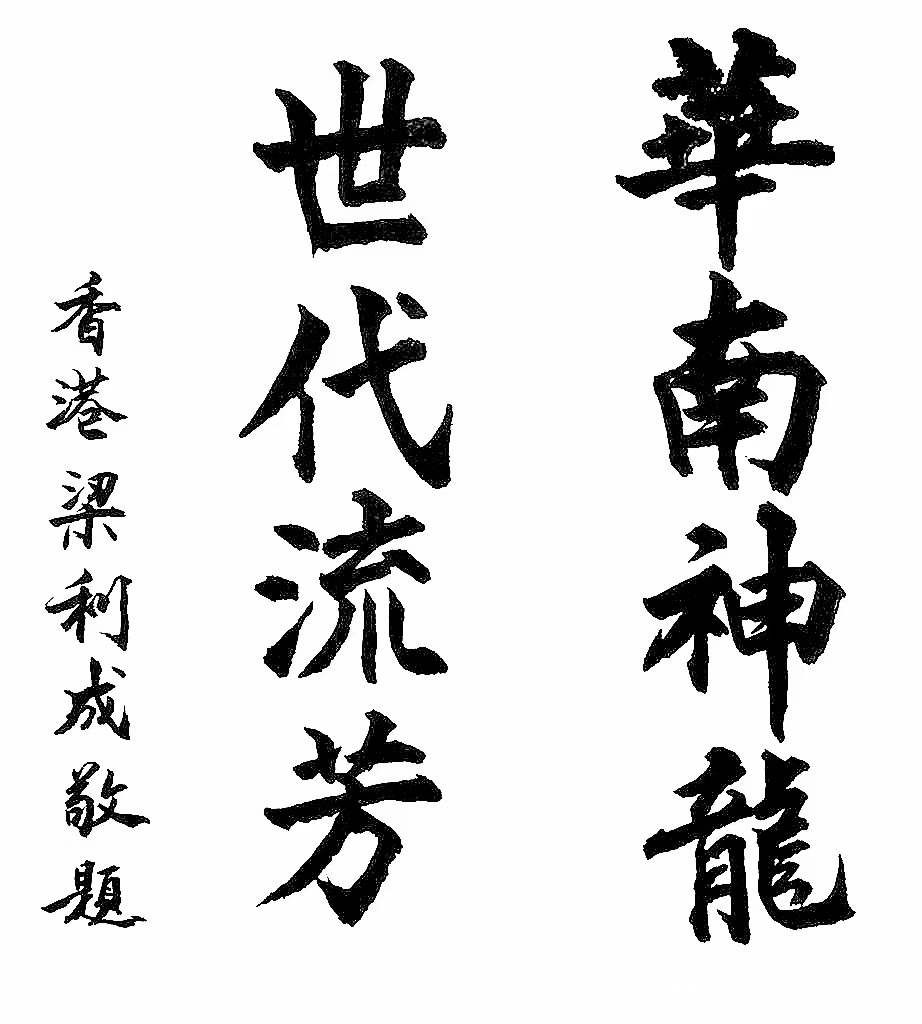 華南神龍
世代流芳
香港梁利成敬題